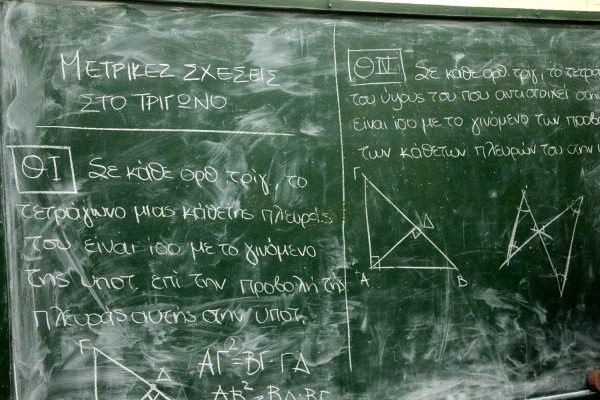 ΜΕΤΡΙΚΕΣ ΣΧΕΣΕΙΣ
ΣΤΟ ΤΡΙΓΩΝΟ
Θ I Σε κάθε ορθ. τρίγ, το
τετράγωνο μιας κάθετης πλευράς
του είναι ίσο με το γινόμενο
της υποτ. επί την προβολή της
πλευράς αυτής στην υποτ.
Γ
Δ
ΑΓ²=ΒΓ·ΓΔ
ΑΒ²=ΒΔ·ΒΓ
Θ IV Σε κάθε ορθ. τρίγ, το τετρά
του ύψους του που αντιστοιχεί στην
είναι ίσο με το γινόμενο των προβο
των κάθετων πλευρών του στην
Γ
Δ
Α
Β